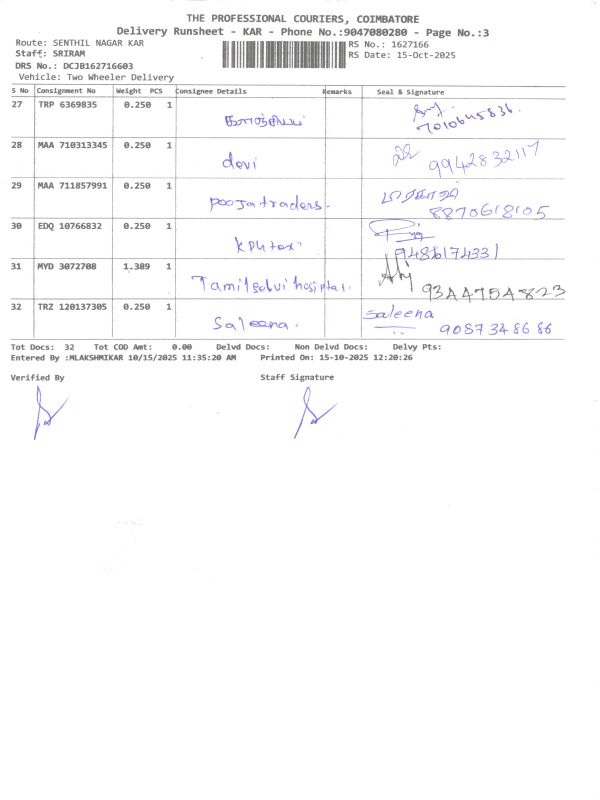 THE PROFESSIONAL COURIERS, COIMBATORE
Delivery Runsheet - KAR - Phone No.:9047080280 - Page No.:3
Route: SENTHIL NAGAR KAR RS No.: 1627166
Staff: SRIRAM RS Date: 15-Oct-2025
DRS No.: DCJB162716603
Vehicle: Two Wheeler Delivery
S No Consignment No Weight PCS Consignee Details Remarks Seal & Signature
27 TRP 6369835 0.250 1
28 MAA 710313345 0.250 1 devi 9942832117
29 MAA 711857991 0.250 1 pooja traders. 8870618105
30 EDQ 10766832 0.250 1 9486174331
31 MYD 3072708 1.389 1 Tamilselvi hosiptal. 9344754823
32 TRZ 120137305 0.250 1 Saleena. Saleena
9087348686
Tot Docs: 32 Tot COD Amt: 0.00 Delvd Docs: Non Delvd Docs: Delvy Pts:
Entered By :MLAKSHMIKAR 10/15/2025 11:35:20 AM Printed On: 15-10-2025 12:20:26
Verified By Staff Signature